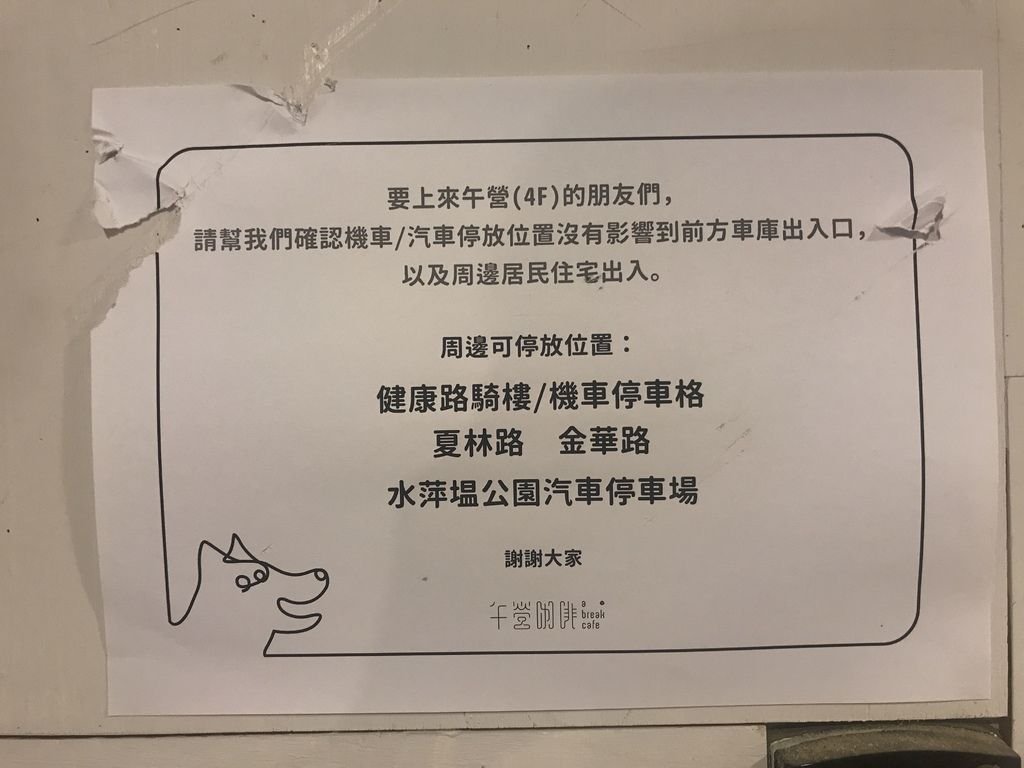 要上來午營(4F)的朋友們，
請幫我們確認機車/汽車停放位置沒有影響到前方車庫出入口，
以及周邊居民住宅出入。
周邊可停放位置：
健康路騎樓/機車停車格
夏林路　金華路
水萍塭公園汽車停車場
謝謝大家
午營咖啡 a break cafe